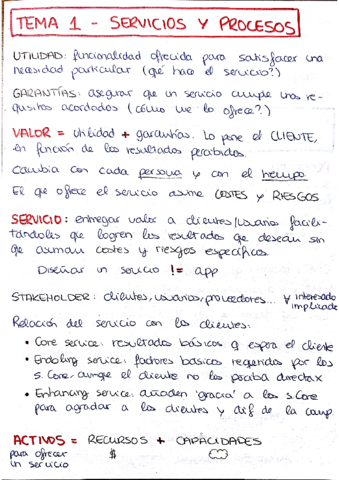 TEMA 1 - SERVICIOS Y PROCESOS
UTILIDAD: funcionalidad ofrecida para satisfacer una
necesidad particular (qué hace el servicio?)
GARANTÍAS: asegurar que un servicio cumple unos re-
quisitos acordados (cómo me lo ofrece?)
VALOR = utilidad + garantías. Lo pone el CLIENTE,
en función de los resultados percibidos.
Cambia con cada persona y con el tiempo
El que ofrece el servicio asume COSTES y RIESGOS
SERVICIO: entregar valor a clientes/usuarios facili-
tándoles que logren los resultados que desean sin
que asuman costes y riesgos específicos.
Diseñar un servicio != app
STAKEHOLDER: clientes, usuarios, proveedores... ∀ interesado
implicado
Relación del servicio con los clientes:
• Core service: resultados básicos q espera el cliente
• Enabling service: factores básicos requeridos por los
s. Core, aunque el cliente no los perciba directax
• Enhancing service: añaden 'gracia' a los s. Core
para agradar a los clientes y dif de la comp.
ACTIVOS = RECURSOS + CAPACIDADES
para ofrecer $
un servicio